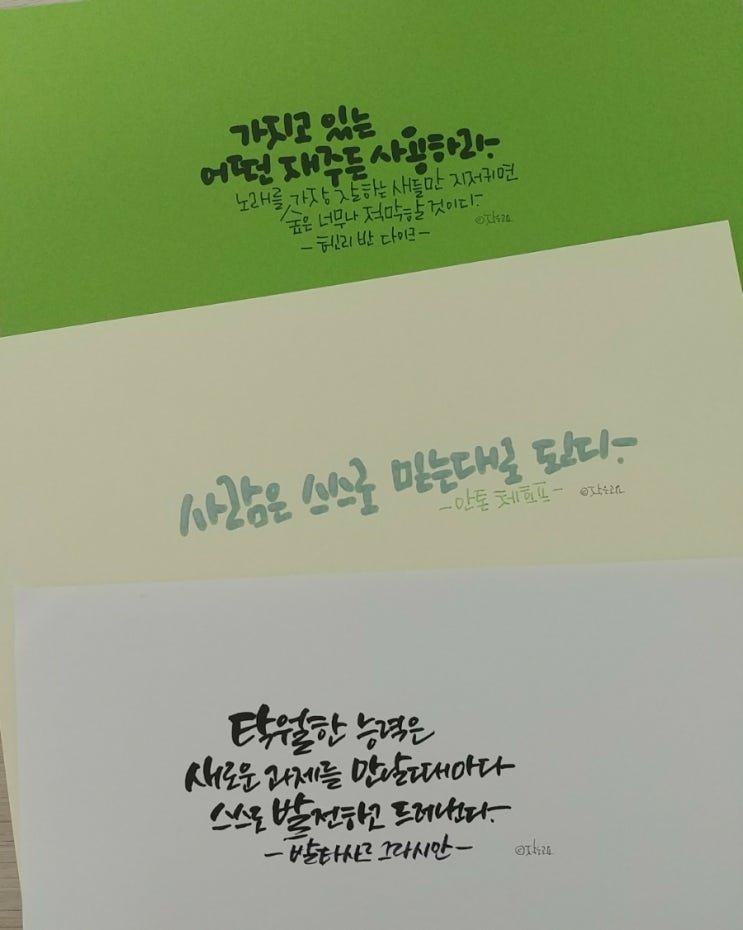 가지고 있는
어떤 재주든 사용하라~
노래를 가장 잘하는 새들만 지저귀면
숲은 너무나 적막할 것이다~
- 헨리 반 다이크 -
사람은 스스로 믿는대로 된다~
- 안톤 체호프 -
탁월한 능력은
새로운 과제를 만날때마다
스스로 발전하고 드러낸다~
- 발타사르 그라시안 -